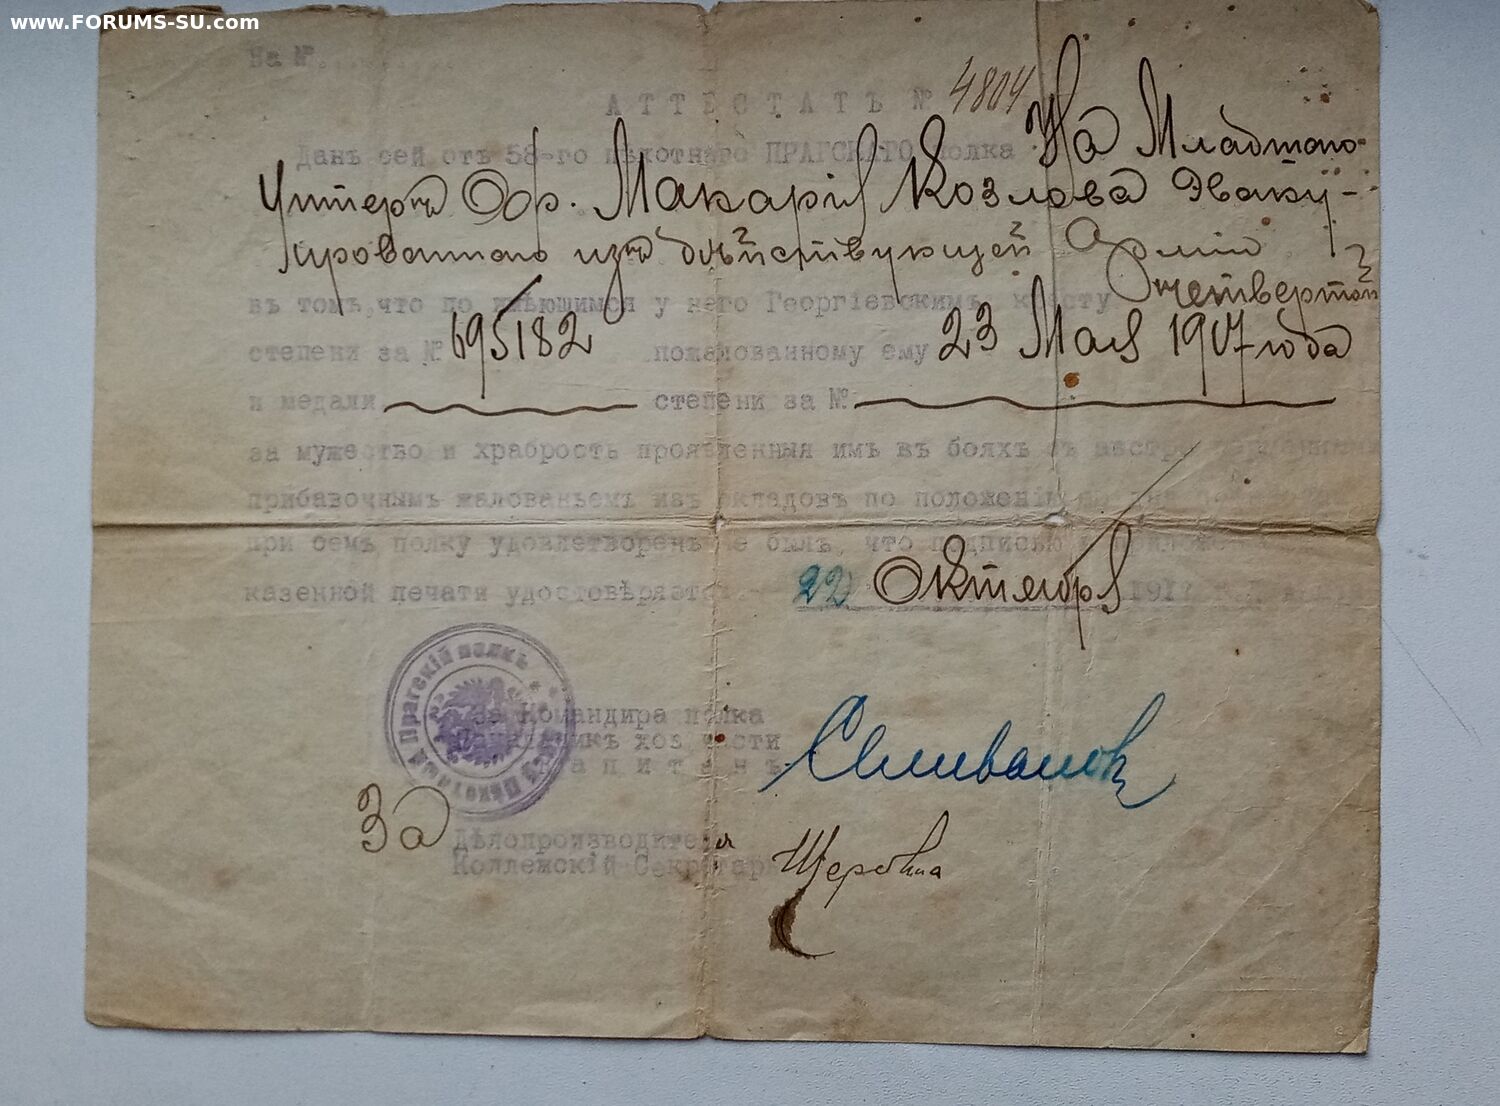 www.FORUMS-SU.com
На №
АТТЕСТАТЪ № 4804
Данъ сей отъ 58-го пѣхотнаго ПРАГСКАГО полка На Младшаго
Унтеръ Оф. Макарія Козлова Эваку-
ированнаго изъ дѣйствующей Арміи
въ томъ, что по имѣющимся у него Георгіевскимъ кресту четвертой
степени за № 695182 пожалованному ему 23 Мая 1917 года
и медали степени за №
за мужество и храбрость проявленныя имъ въ бояхъ съ
прибавочнымъ жалованьемъ изъ окладовъ по положенію
при семъ полку удовлетворенъ не былъ, что подписью
казенной печати удостовѣряется 22 Октября
Прагскій полкъ
Командира полка
хоз части
Капитанъ
За Дѣлопроизводителя
Коллежскій Секретарь